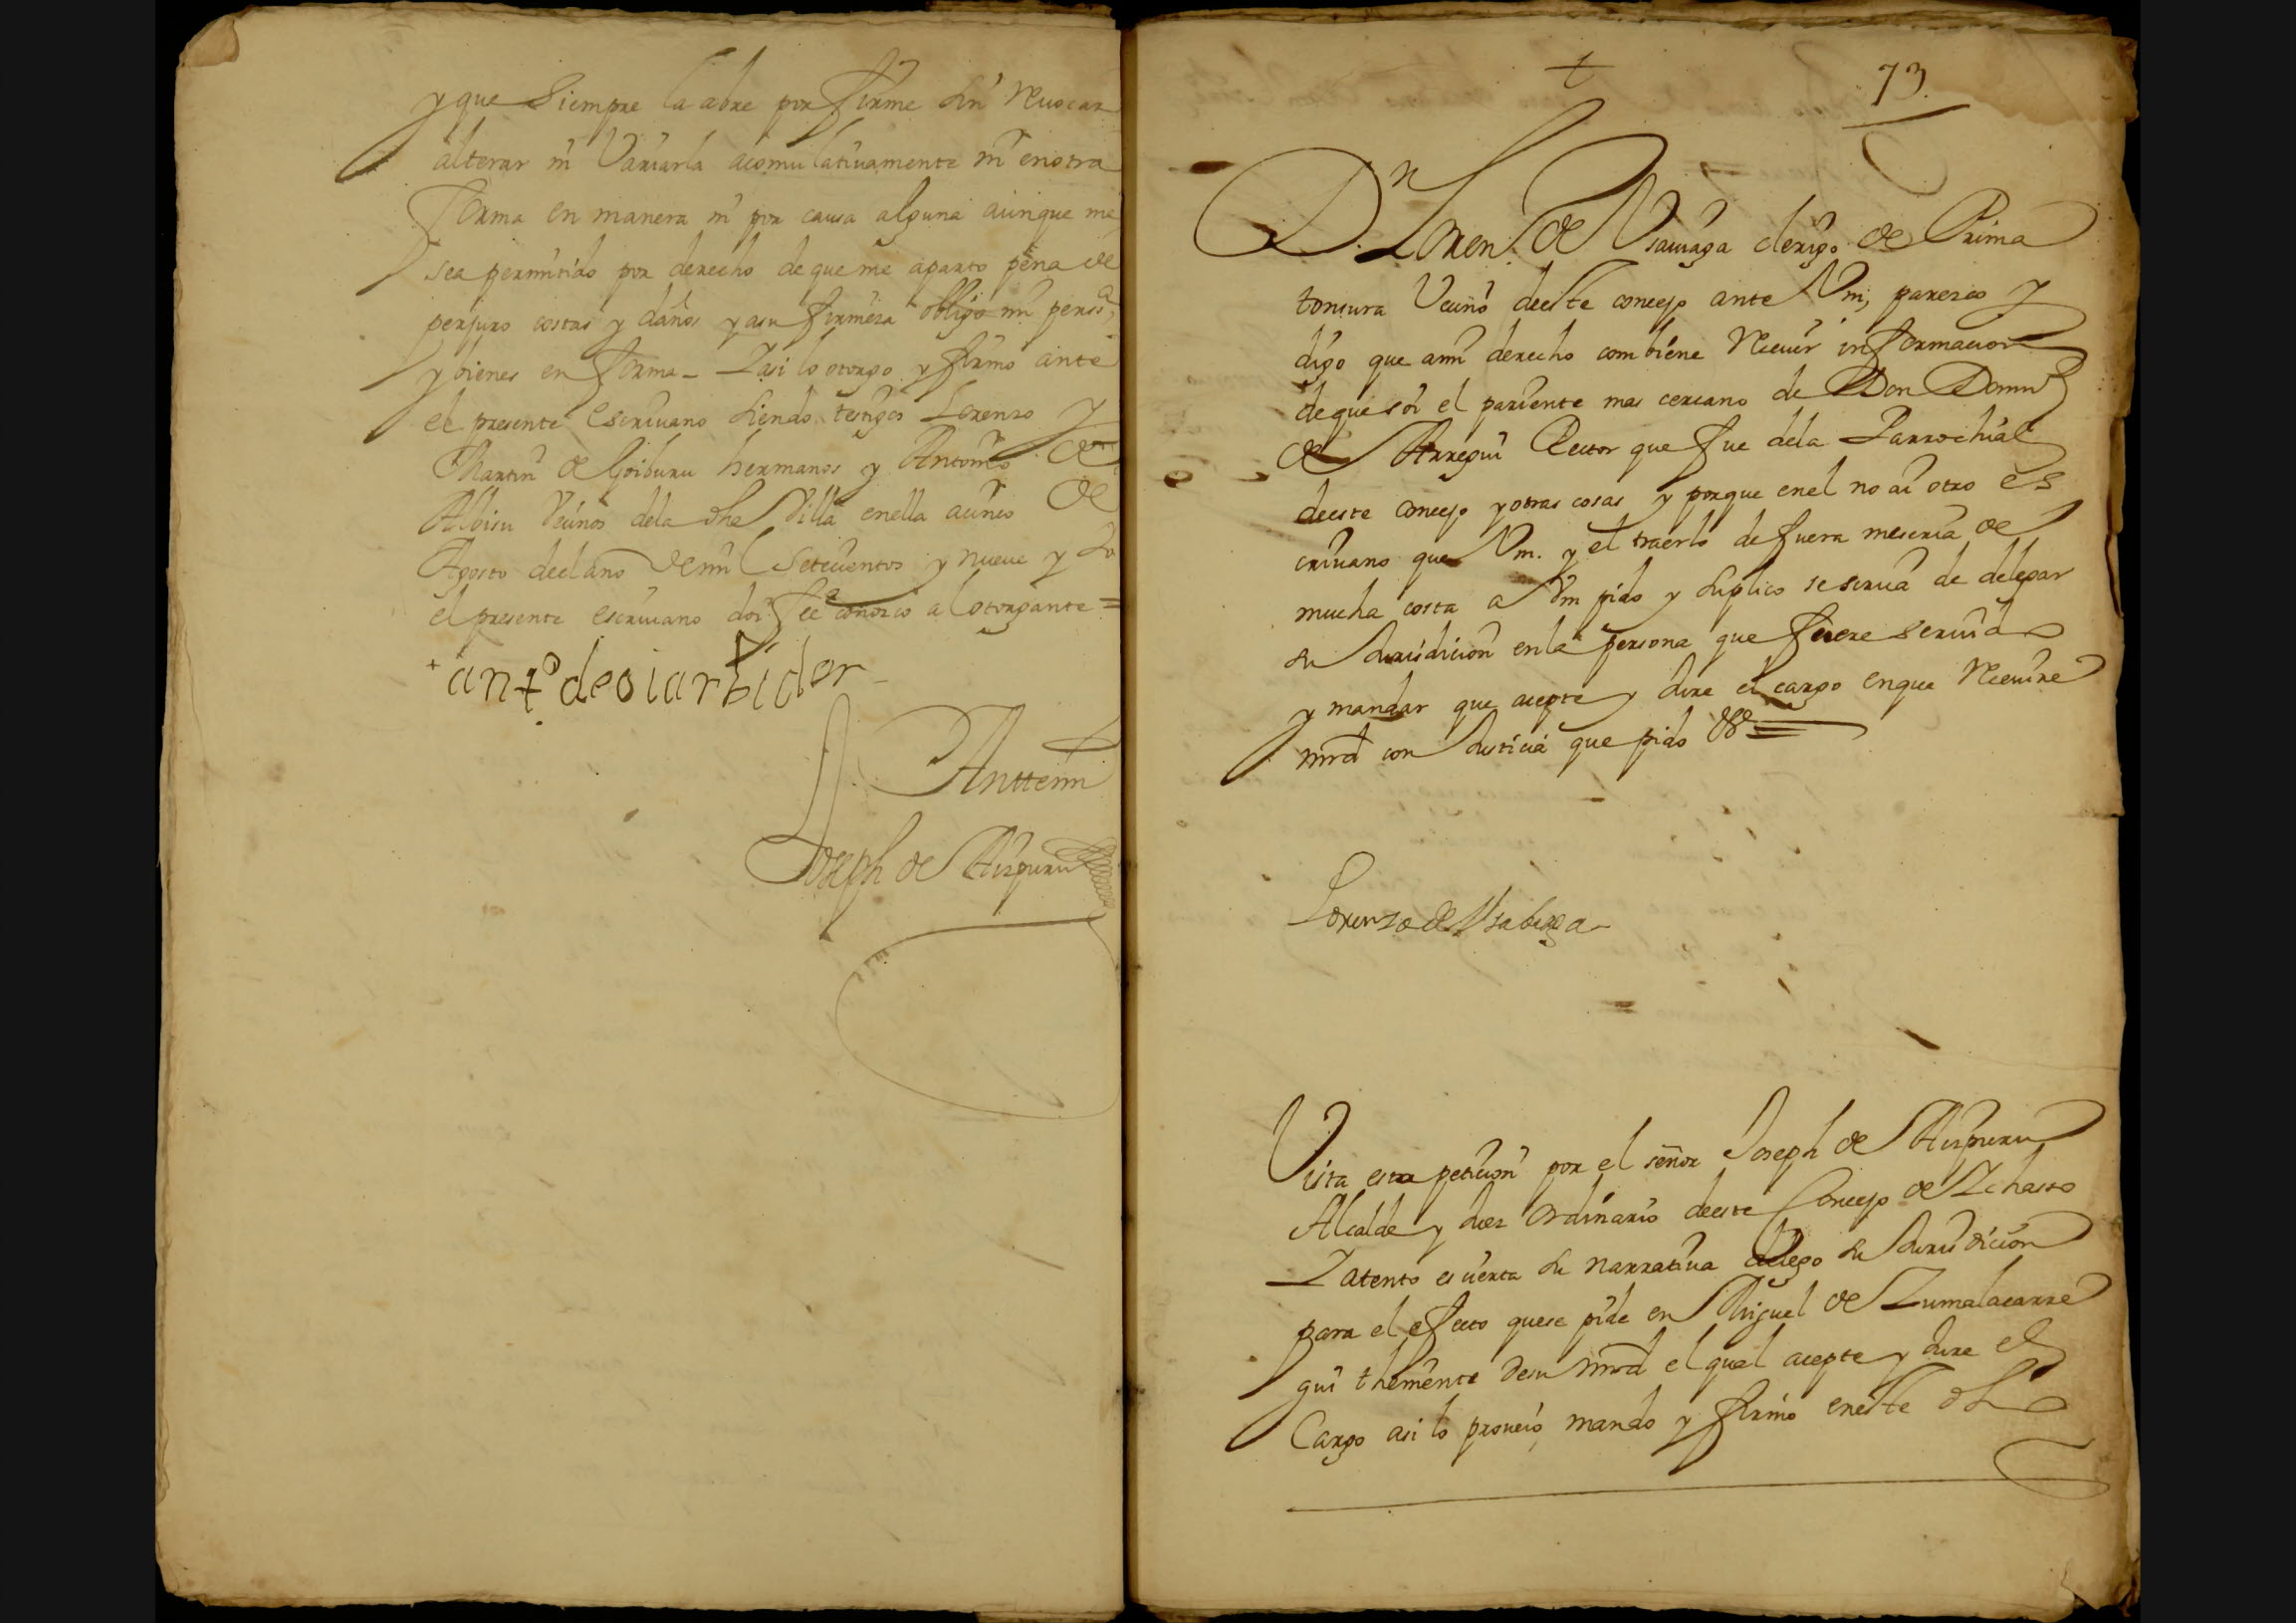 y que Siempre la abre por firme sin Reuocar
alterar ni Variarla acomulatiuamente ni enotra
forma en manera ni por causa alguna aunque me
sea permitido por derecho de que me aparto pena de
perjuro costas y daños y asu firmeza obligo mi perss.ª
y bienes en forma – Y asi lo otorgo y firmo ante
el presente escriuano siendo testigos Lorenzo y
Martin de Goiburu hermanos y Antonio de
Albisu Vecinos dela dha Villa enella a de
Agosto deel año de mil Setecientos y nueue y Yo
el presente escriuano doi fee conozco al otorgante =
+ antº de oiarbider
Anttemi
Joseph de Aizpuru
+
73.
D.n Loren.º de Vsauiaga clerigo de Prima
tonsura Vecino deeste concejo ante Vm, parezco y
digo que ami derecho combiene Recuir informacion
de que soi el pariente mas cercano de Don Domin.º
de Arregui Rector que fue dela Parrochial
deeste concejo y otras cosas y porque enel no ai otro es
criuano que Vm. y el traerlo de fuera me seria de
mucha costa a Vm pido y suplico se serua de delegar
su Jurisdicion enla persona que fuere seruido
y mandar que acepte y Jure el cargo enque Receuire
mrd con Justicia que pido &ª
Lorenzo de Vsabiaga
Vista esta peticion por el señor Joseph de Aizpuru
Alcalde y Juez Ordinario deeste Concejo de Ichasso
Y atento es cierta su narratiua delego su Jurisdicion
para el efecto quese pide en Miguel de Zumalacarre
gui theniente de su mrd el qual acepte y Jure el
Cargo asi lo proueio, mando y firmo eneste dho